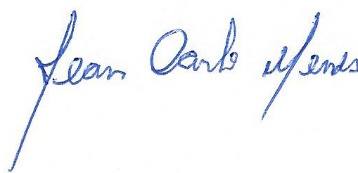 Jean Carlo Mendes